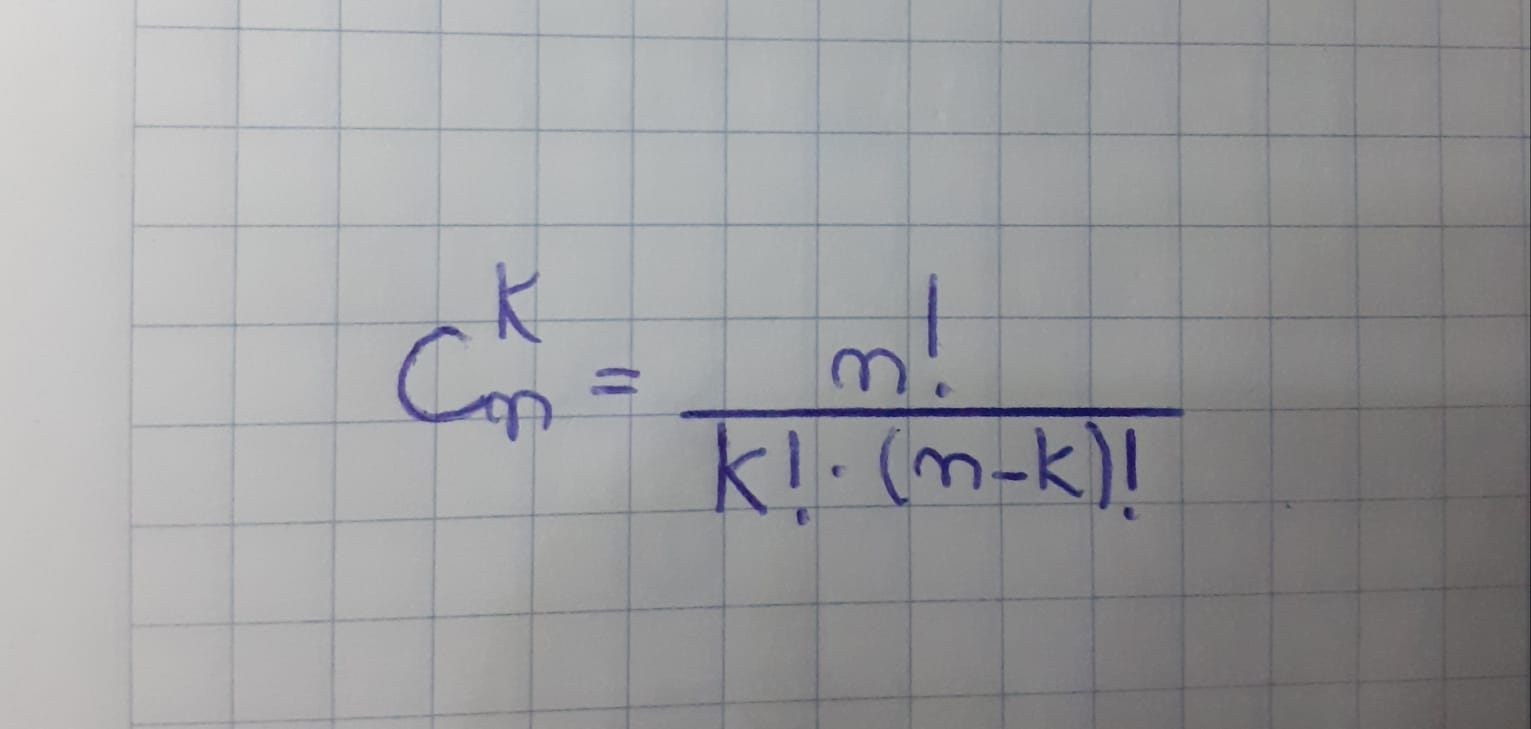 C_n^k = \frac{n!}{k! \cdot (n-k)!}